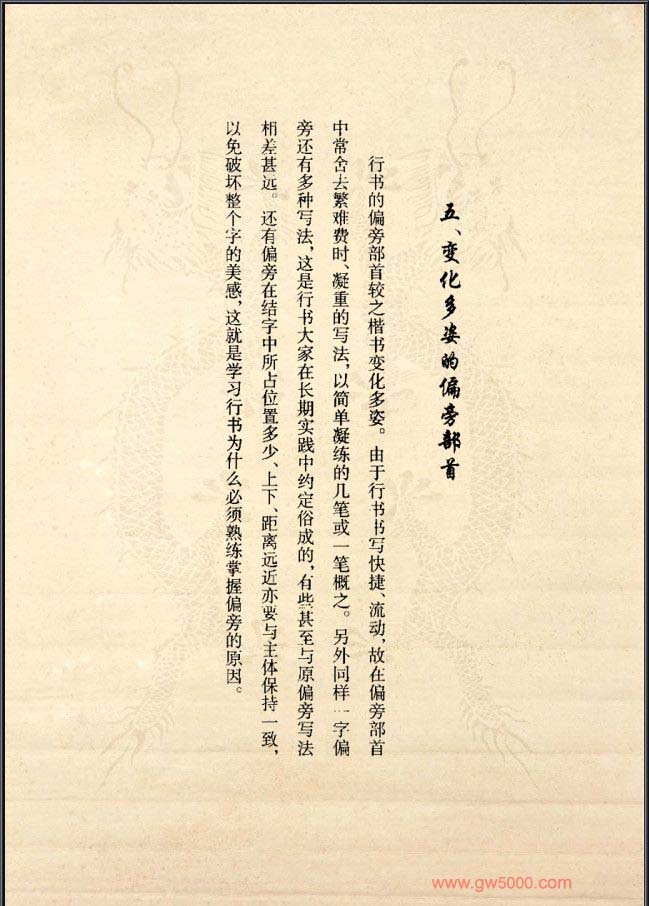 五、变化多姿的偏旁部首
行书的偏旁部首较之楷书变化多姿。由于行书书写快捷、流动，故在偏旁部首
中常舍去繁难费时、凝重的写法，以简单凝练的几笔或一笔概之。另外同样一字偏
旁还有多种写法，这是行书大家在长期实践中约定俗成的，有些甚至与原偏旁写法
相差甚远。还有偏旁在结字中所占位置多少、上下、距离远近亦要与主体保持一致，
以免破坏整个字的美感，这就是学习行书为什么必须熟练掌握偏旁的原因。
www.gw5000.com